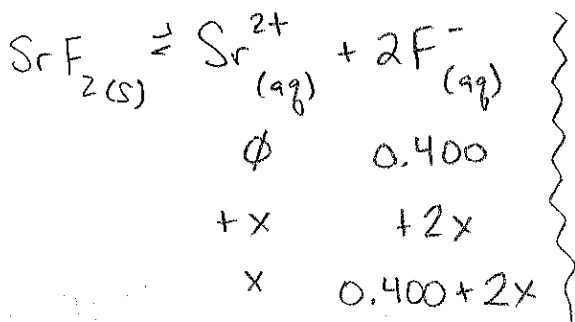 SrF₂(s) ⇌ Sr²⁺(aq) + 2F⁻(aq)
∅ 0.400
+x +2x
x 0.400+2x